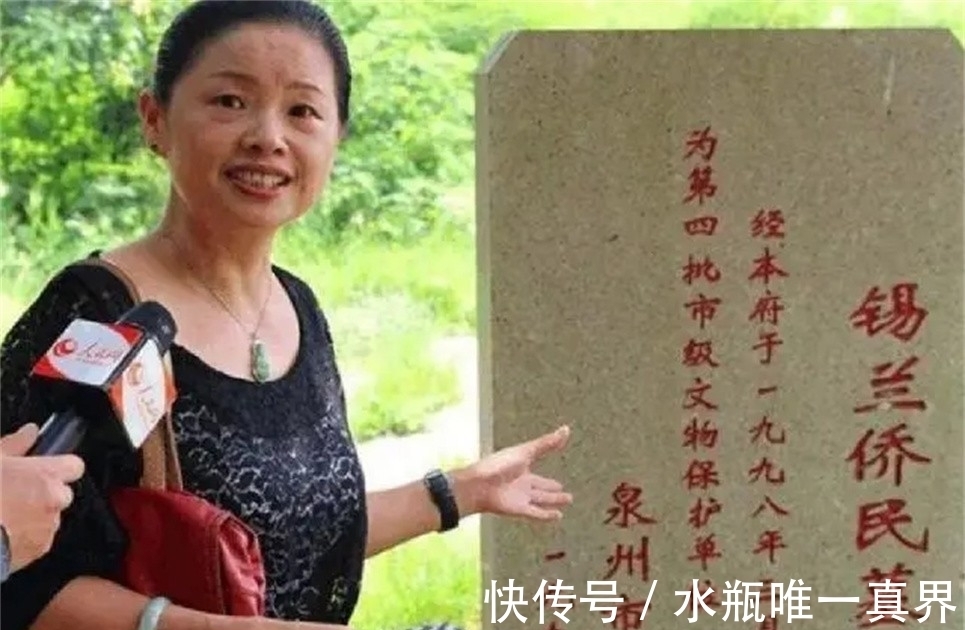 锡兰侨民
经本府于一九九八年
为第四批市级文物保护单
泉州市
一
人民网
快传号 / 水瓶唯一真界